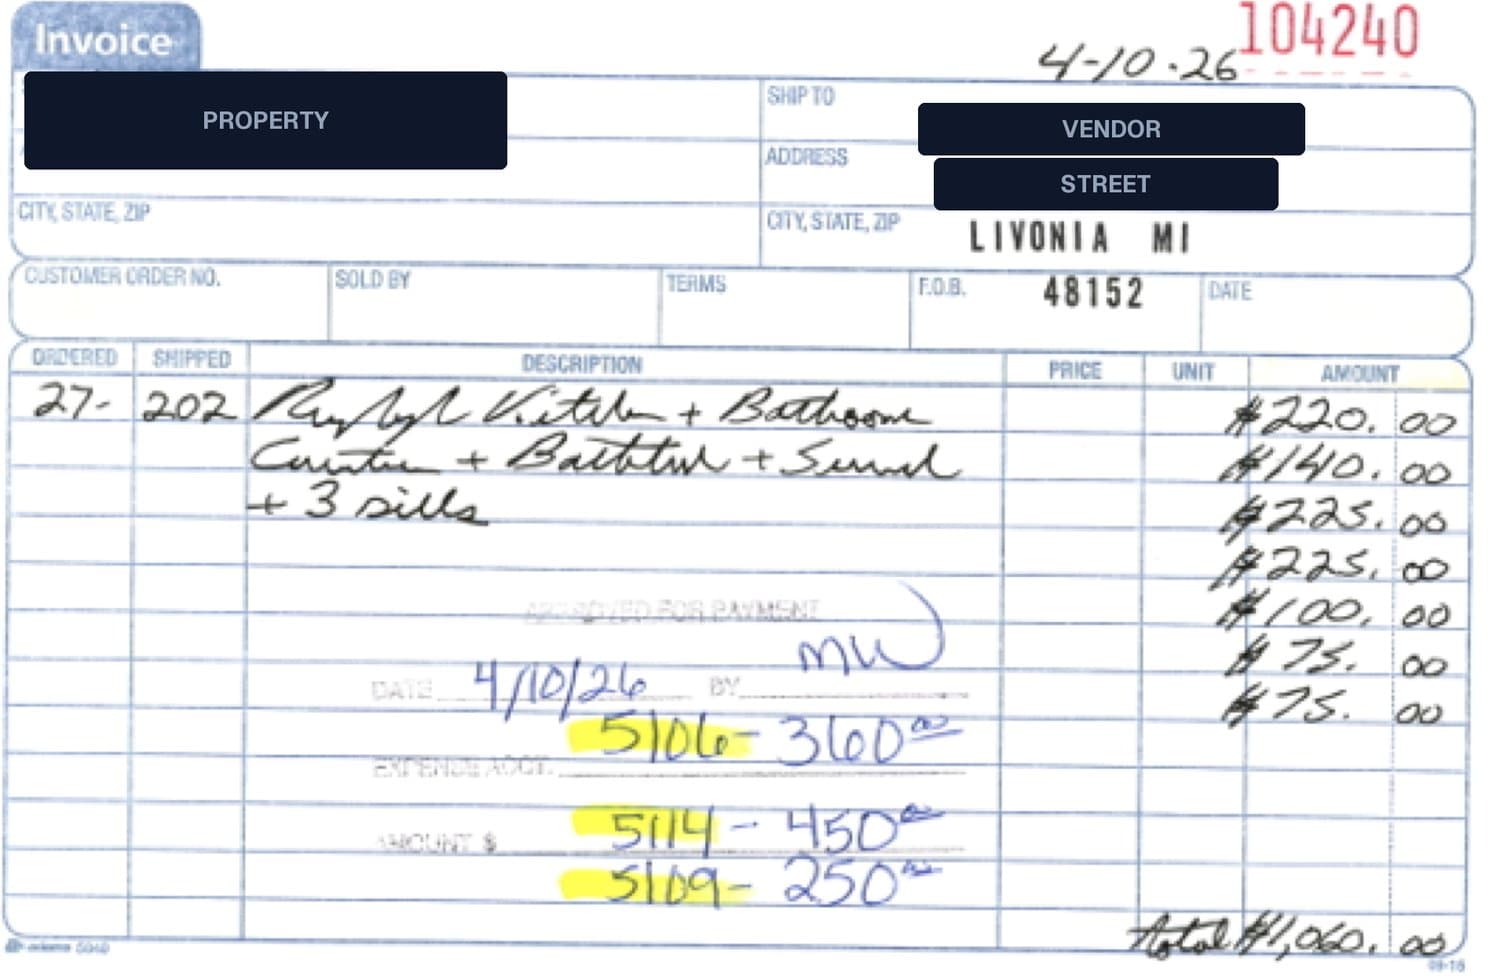 Invoice
104240
4-10-26
PROPERTY
SHIP TO
VENDOR
ADDRESS
STREET
CITY, STATE, ZIP
CITY, STATE, ZIP
LIVONIA MI
48152
CUSTOMER ORDER NO. SOLD BY TERMS F.O.B. DATE
ORDERED SHIPPED DESCRIPTION PRICE UNIT AMOUNT
27- 202 Kitchen + Bathroom $220.00
Counter + Bathtub + $140.00
+ 3 sills $225.00
$225.00
APPROVED FOR PAYMENT $100.00
MW $75.00
DATE 4/10/26 BY $75.00
5106- 360 00
EXPENSE ACCT.
5114 - 450 00
AMOUNT $
5109- 250 00
total $1,060.00
adams 5840